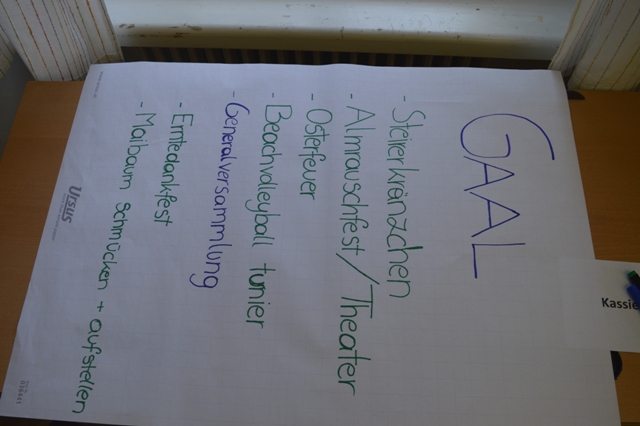 GAAL
- Steirerkränzchen
- Almrauschfest/Theater
- Osterfeuer
- Beachvolleyball turnier
- Generalversammlung
- Erntedankfest
- Maibaum schmücken + aufstellen
URSUS
Kassie